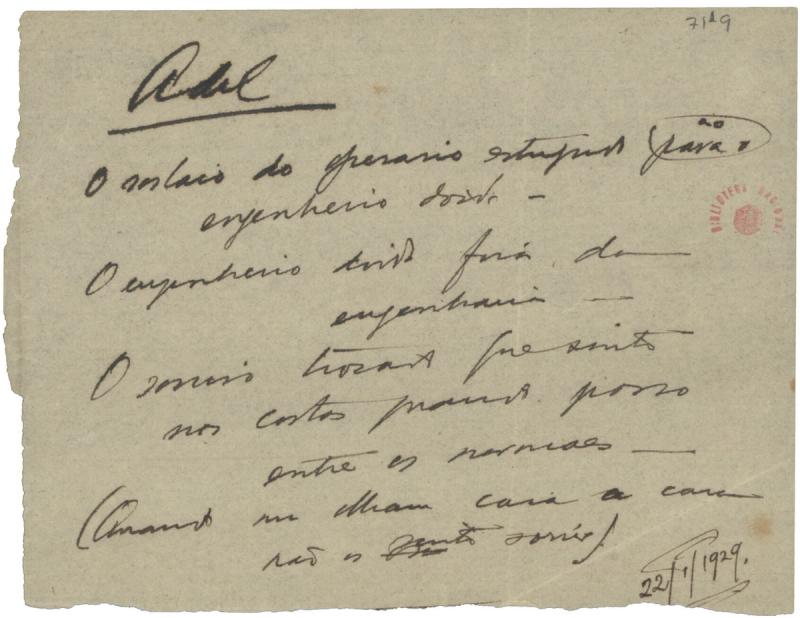 71-9
A de C
O sorriso do operario estupido para o
ao
engenheiro doido —
O engenheiro doido fora da
engenharia —
O sorriso trocado que sinto
nas costas quando passo
entre os normaes —
(Quando me olham cara a cara
não os sinto sorrir).
22/1/1929.
BIBLIOTECA NACIONAL